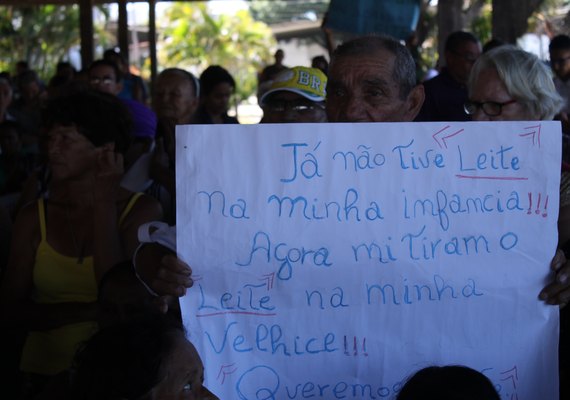 Já não Tive Leite
na minha infancia!!!
Agora mi Tiram o
Leite na minha
Velhice!!!